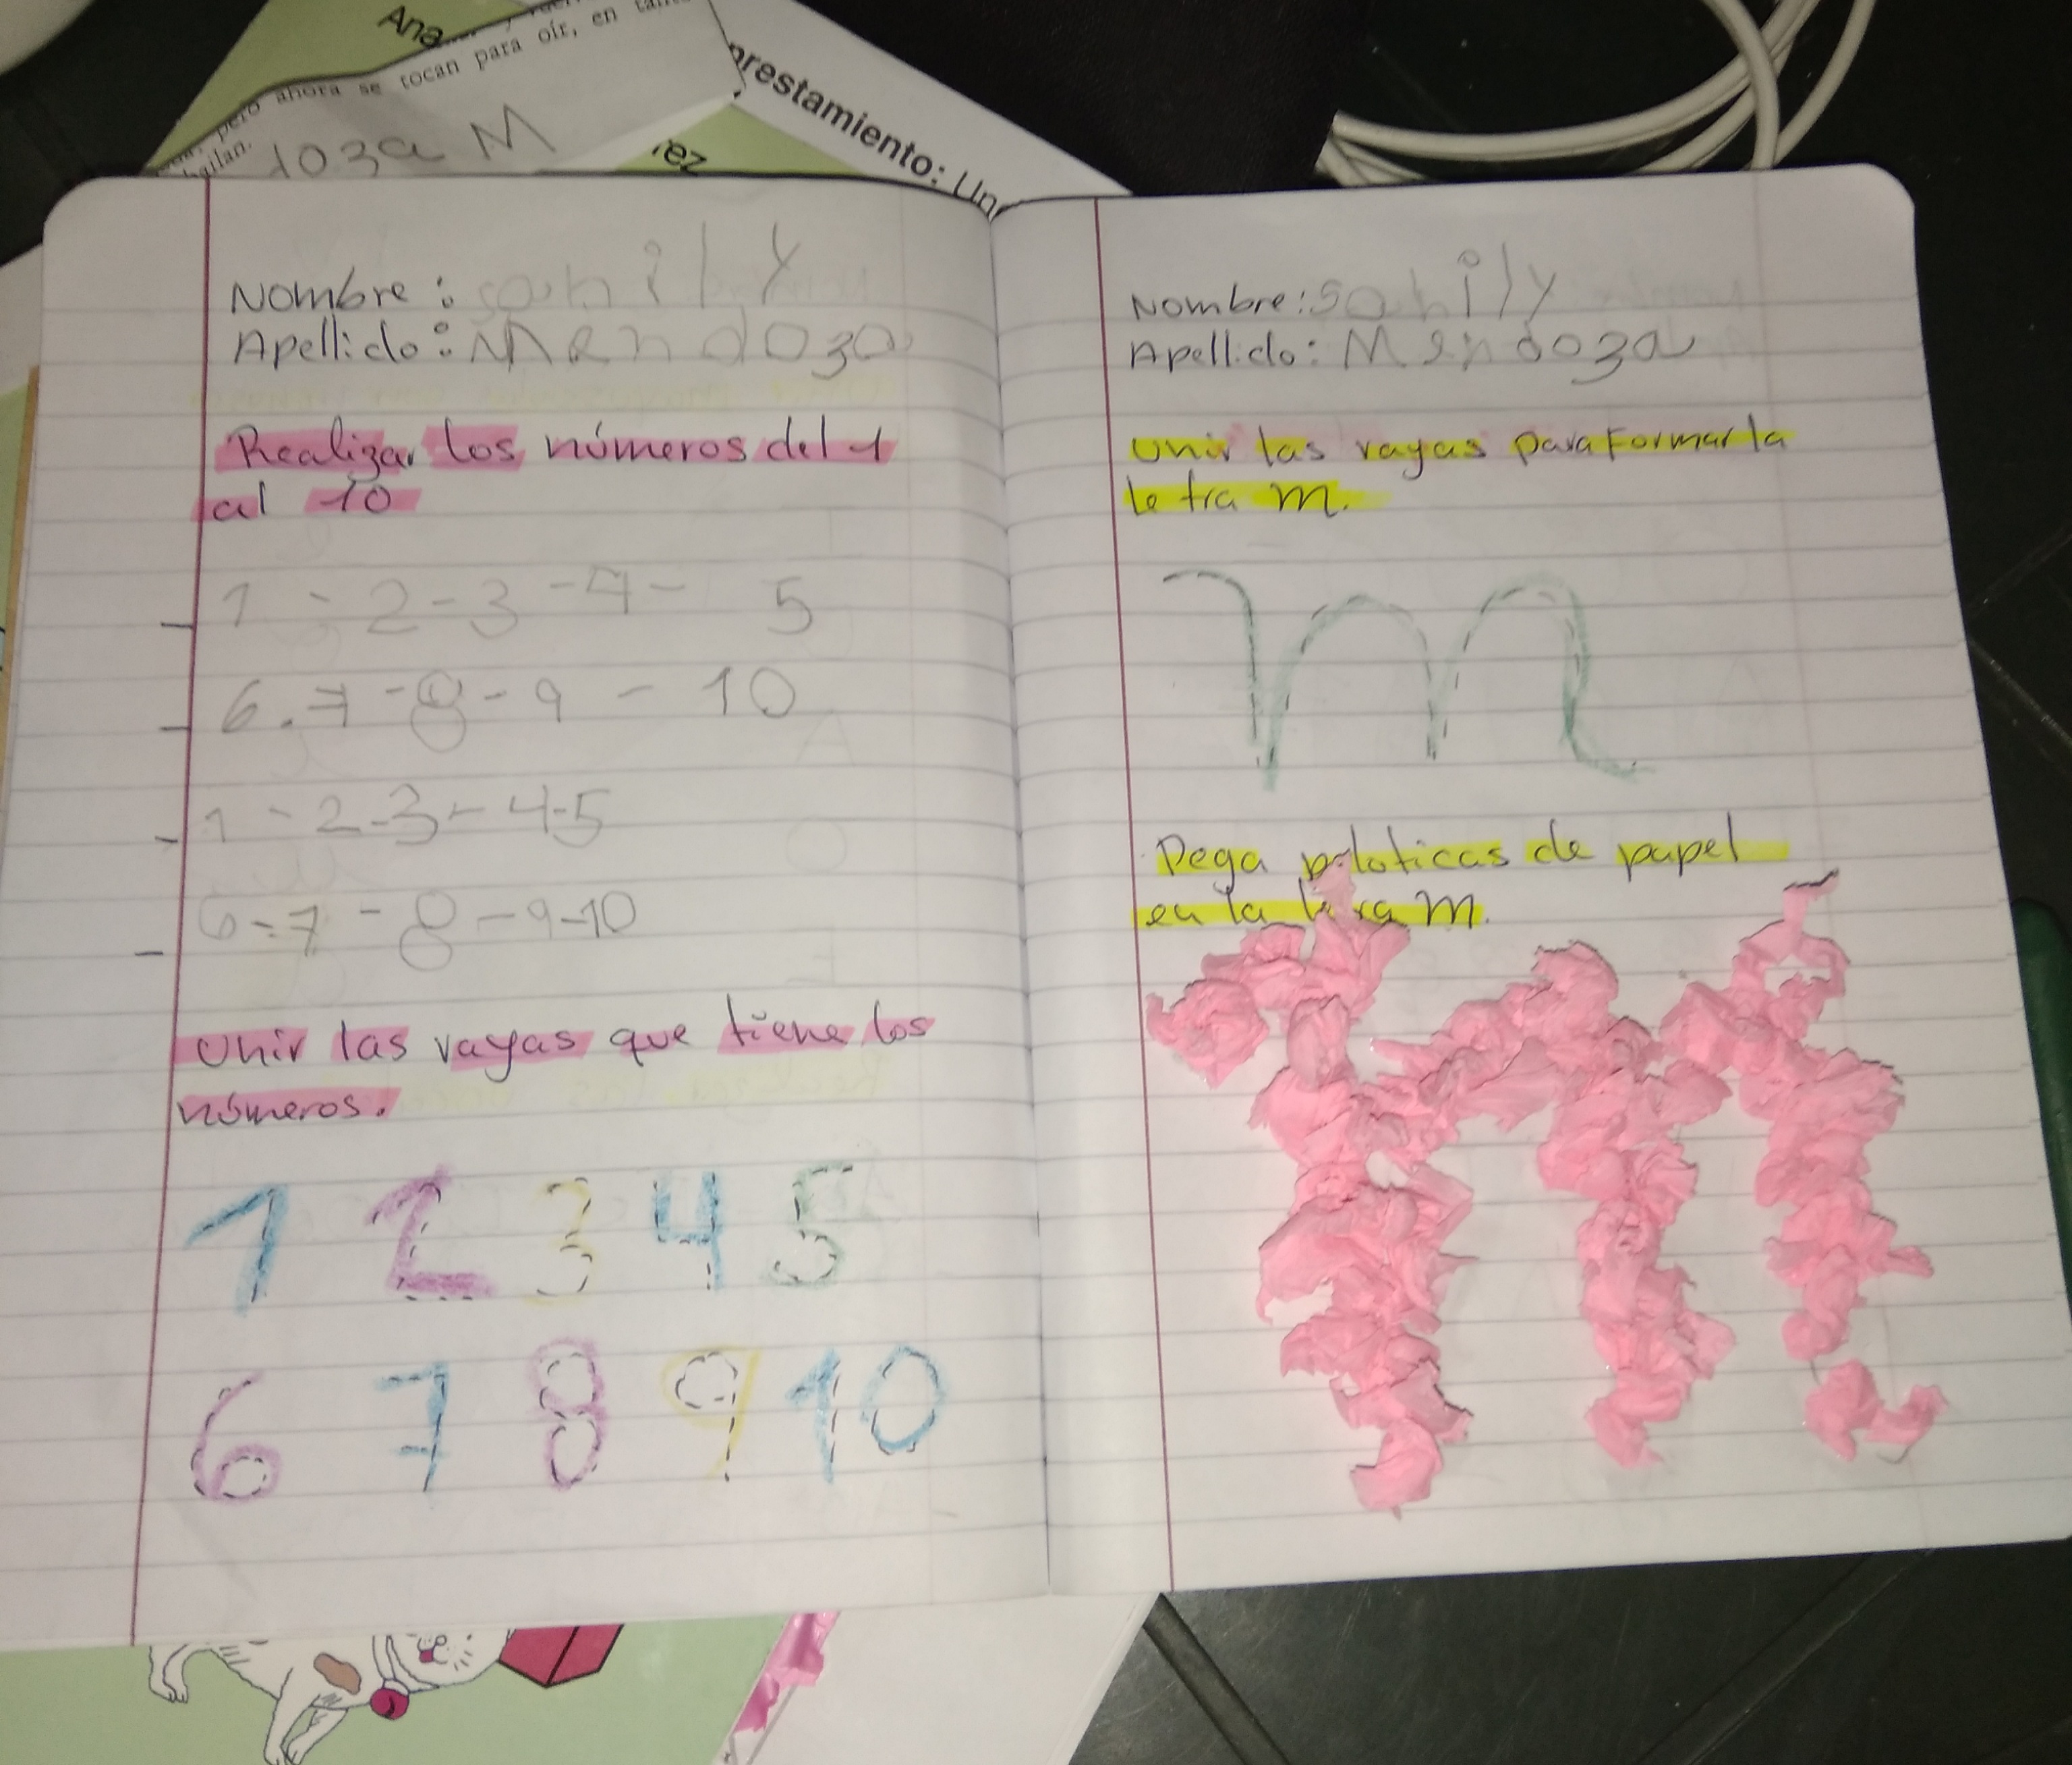 Ana
ahora se tocan para oír, en
pero
bailan.
doza M
rez
prestamiento: Un
Nombre: sahily
Apellido: Mendoza
Realizar los números del 1
al 10
1 - 2 - 3 - 4 - 5
6 . 7 - 8 - 9 - 10
1 - 2 - 3 - 4 - 5
6 - 7 - 8 - 9 - 10
Unir las rayas que tiene los
números.
1 2 3 4 5
6 7 8 9 10
Nombre: Sahily
Apellido: Mendoza
Unir las rayas para Formar la
letra m.
m
Pega peloticas de papel
en la letra m.
m